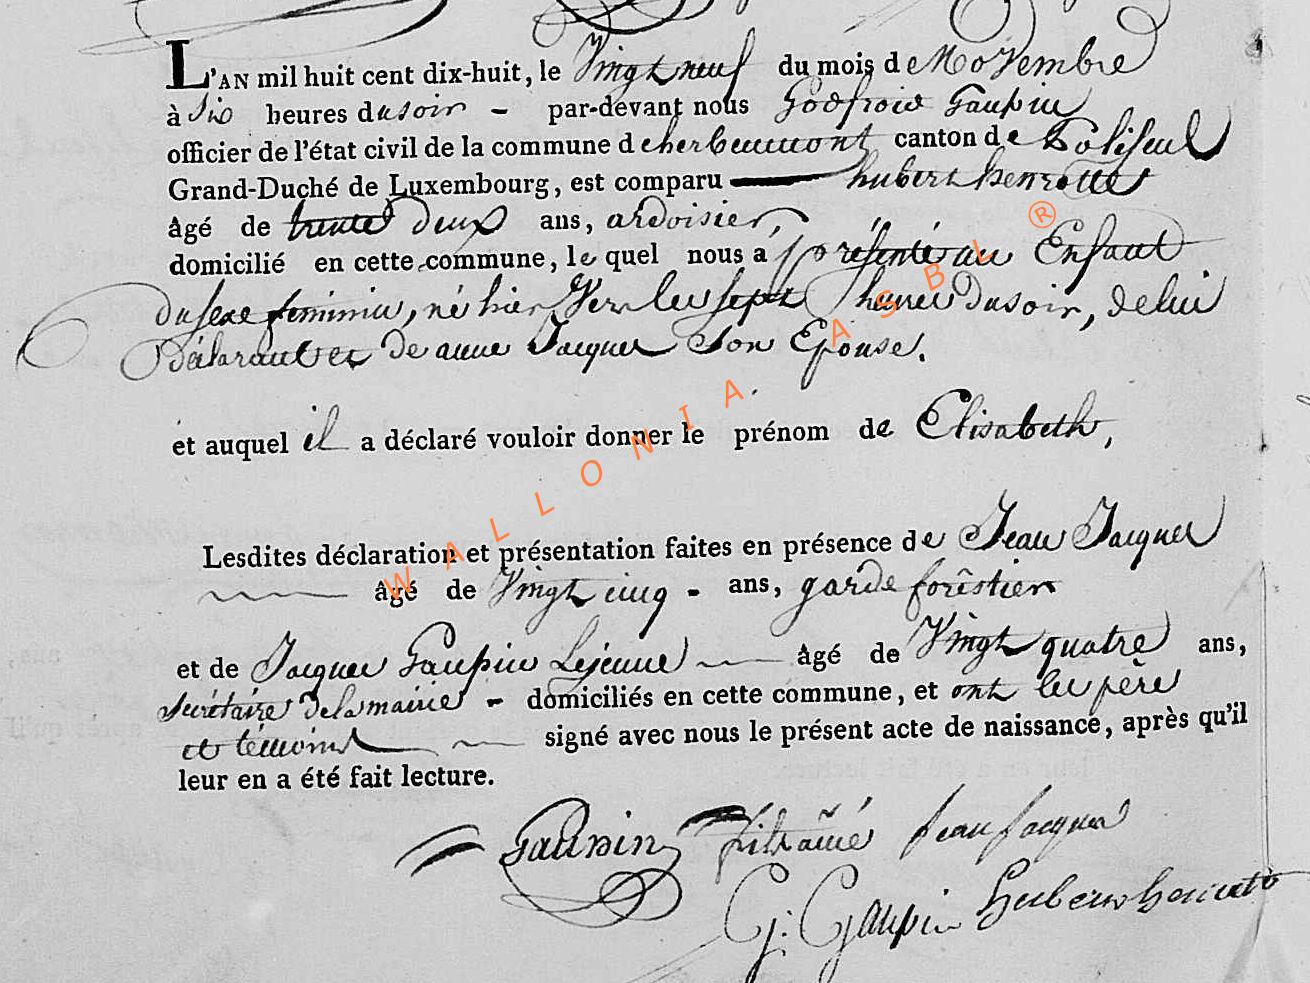 L'AN mil huit cent dix-huit, le Vingt neuf du mois de Novembre
à Six heures du soir - par-devant nous Godfroid Gaupin
officier de l'état civil de la commune d'herbeumont canton de
Grand-Duché de Luxembourg, est comparu hubert henrotte
âgé de trente deux ans, ardoisier,
domicilié en cette commune, le quel nous a présenté un Enfant
du sexe feminin, né hier Vers les sept heures du soir, de lui
Déclarant et de anne Jacques Son Epouse.
et auquel il a déclaré vouloir donner le prénom de Elisabeth,
Lesdites déclaration et présentation faites en présence de Jean Jacques
âgé de Vingt cinq - ans, garde forêstier
et de Jacques Gaupin Lejeune âgé de Vingt quatre ans,
Secrétaire de la mairie - domiciliés en cette commune, et ont les père
et témoins signé avec nous le présent acte de naissance, après qu'il
leur en a été fait lecture.
Gaupin jean jacques
G: Gaupin
WALLONIA ASBL ®